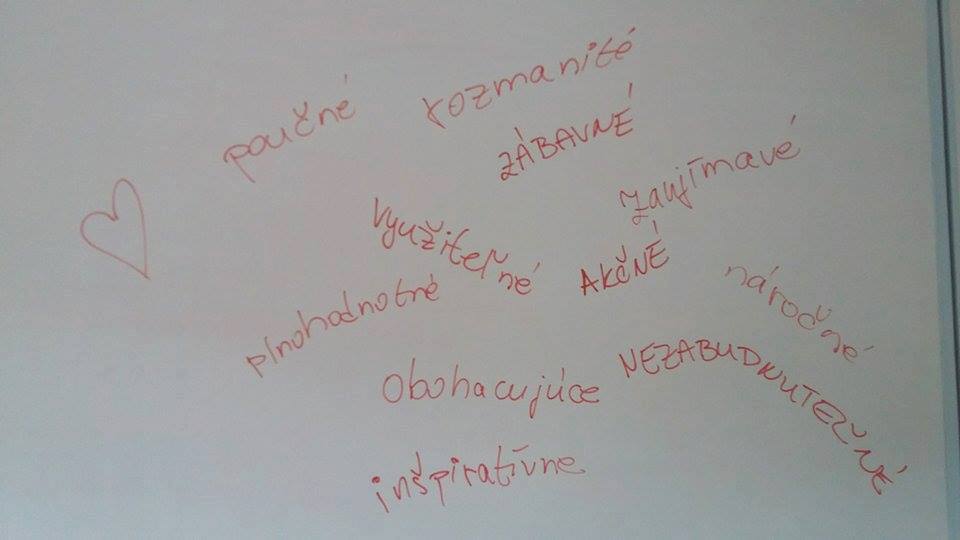 poučné
rozmanité
ZÁBAVNÉ
zaujímavé
Využiteľné
AKČNÉ
náročné
plnohodnotné
NEZABUDNUTEĽNÉ
Obohacujúce
inšpiratívne